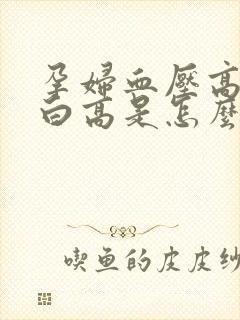 孕婦血壓高
白高是怎麼
喫魚的皮皮紗